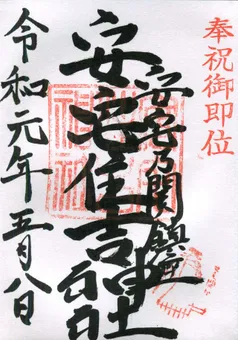 奉祝御即位
安宅乃関鎮守
安宅住吉神社
令和元年五月八日